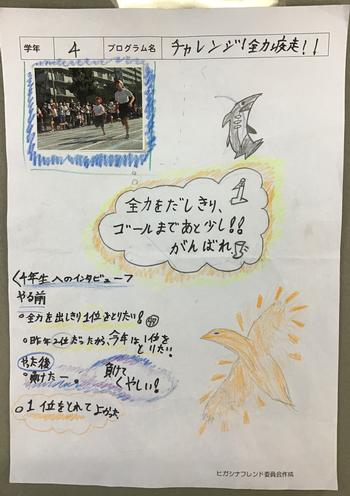 学年 4 プログラム名 チャレンジ!全力疾走!!
全力をだしきり、
ゴールまであと少し!!
がんばれ
<4年生へのインタビュー>
やる前
○全力を出しきり1位をとりたい!
○昨年2位だったから、今年は1位を
とりたい。
やった後
○負けたー。
負けて
くやしい!
○1位をとれてよかった
ヒガシナフレンド委員会作成